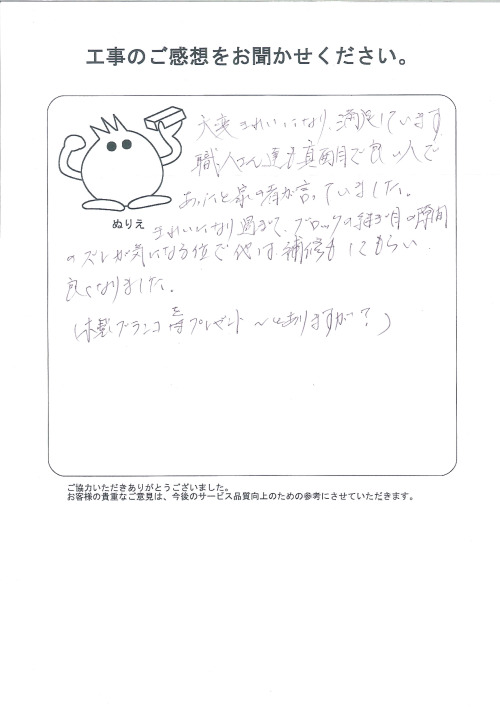 工事のご感想をお聞かせください。
大変きれいになり、満足しています
職人さん達も真面目で良い人で
あったと家の者が言っていました。
ぬりえ
きれいになり過ぎて、ブロックの継ぎ目の隙間
のズレが気になる位で 他は、補修も してもらい
良くなりました。
(木製ブランコをプレゼント 〜とありますが?)
ご協力いただきありがとうございました。
お客様の貴重なご意見は、今後のサービス品質向上のための参考にさせていただきます。